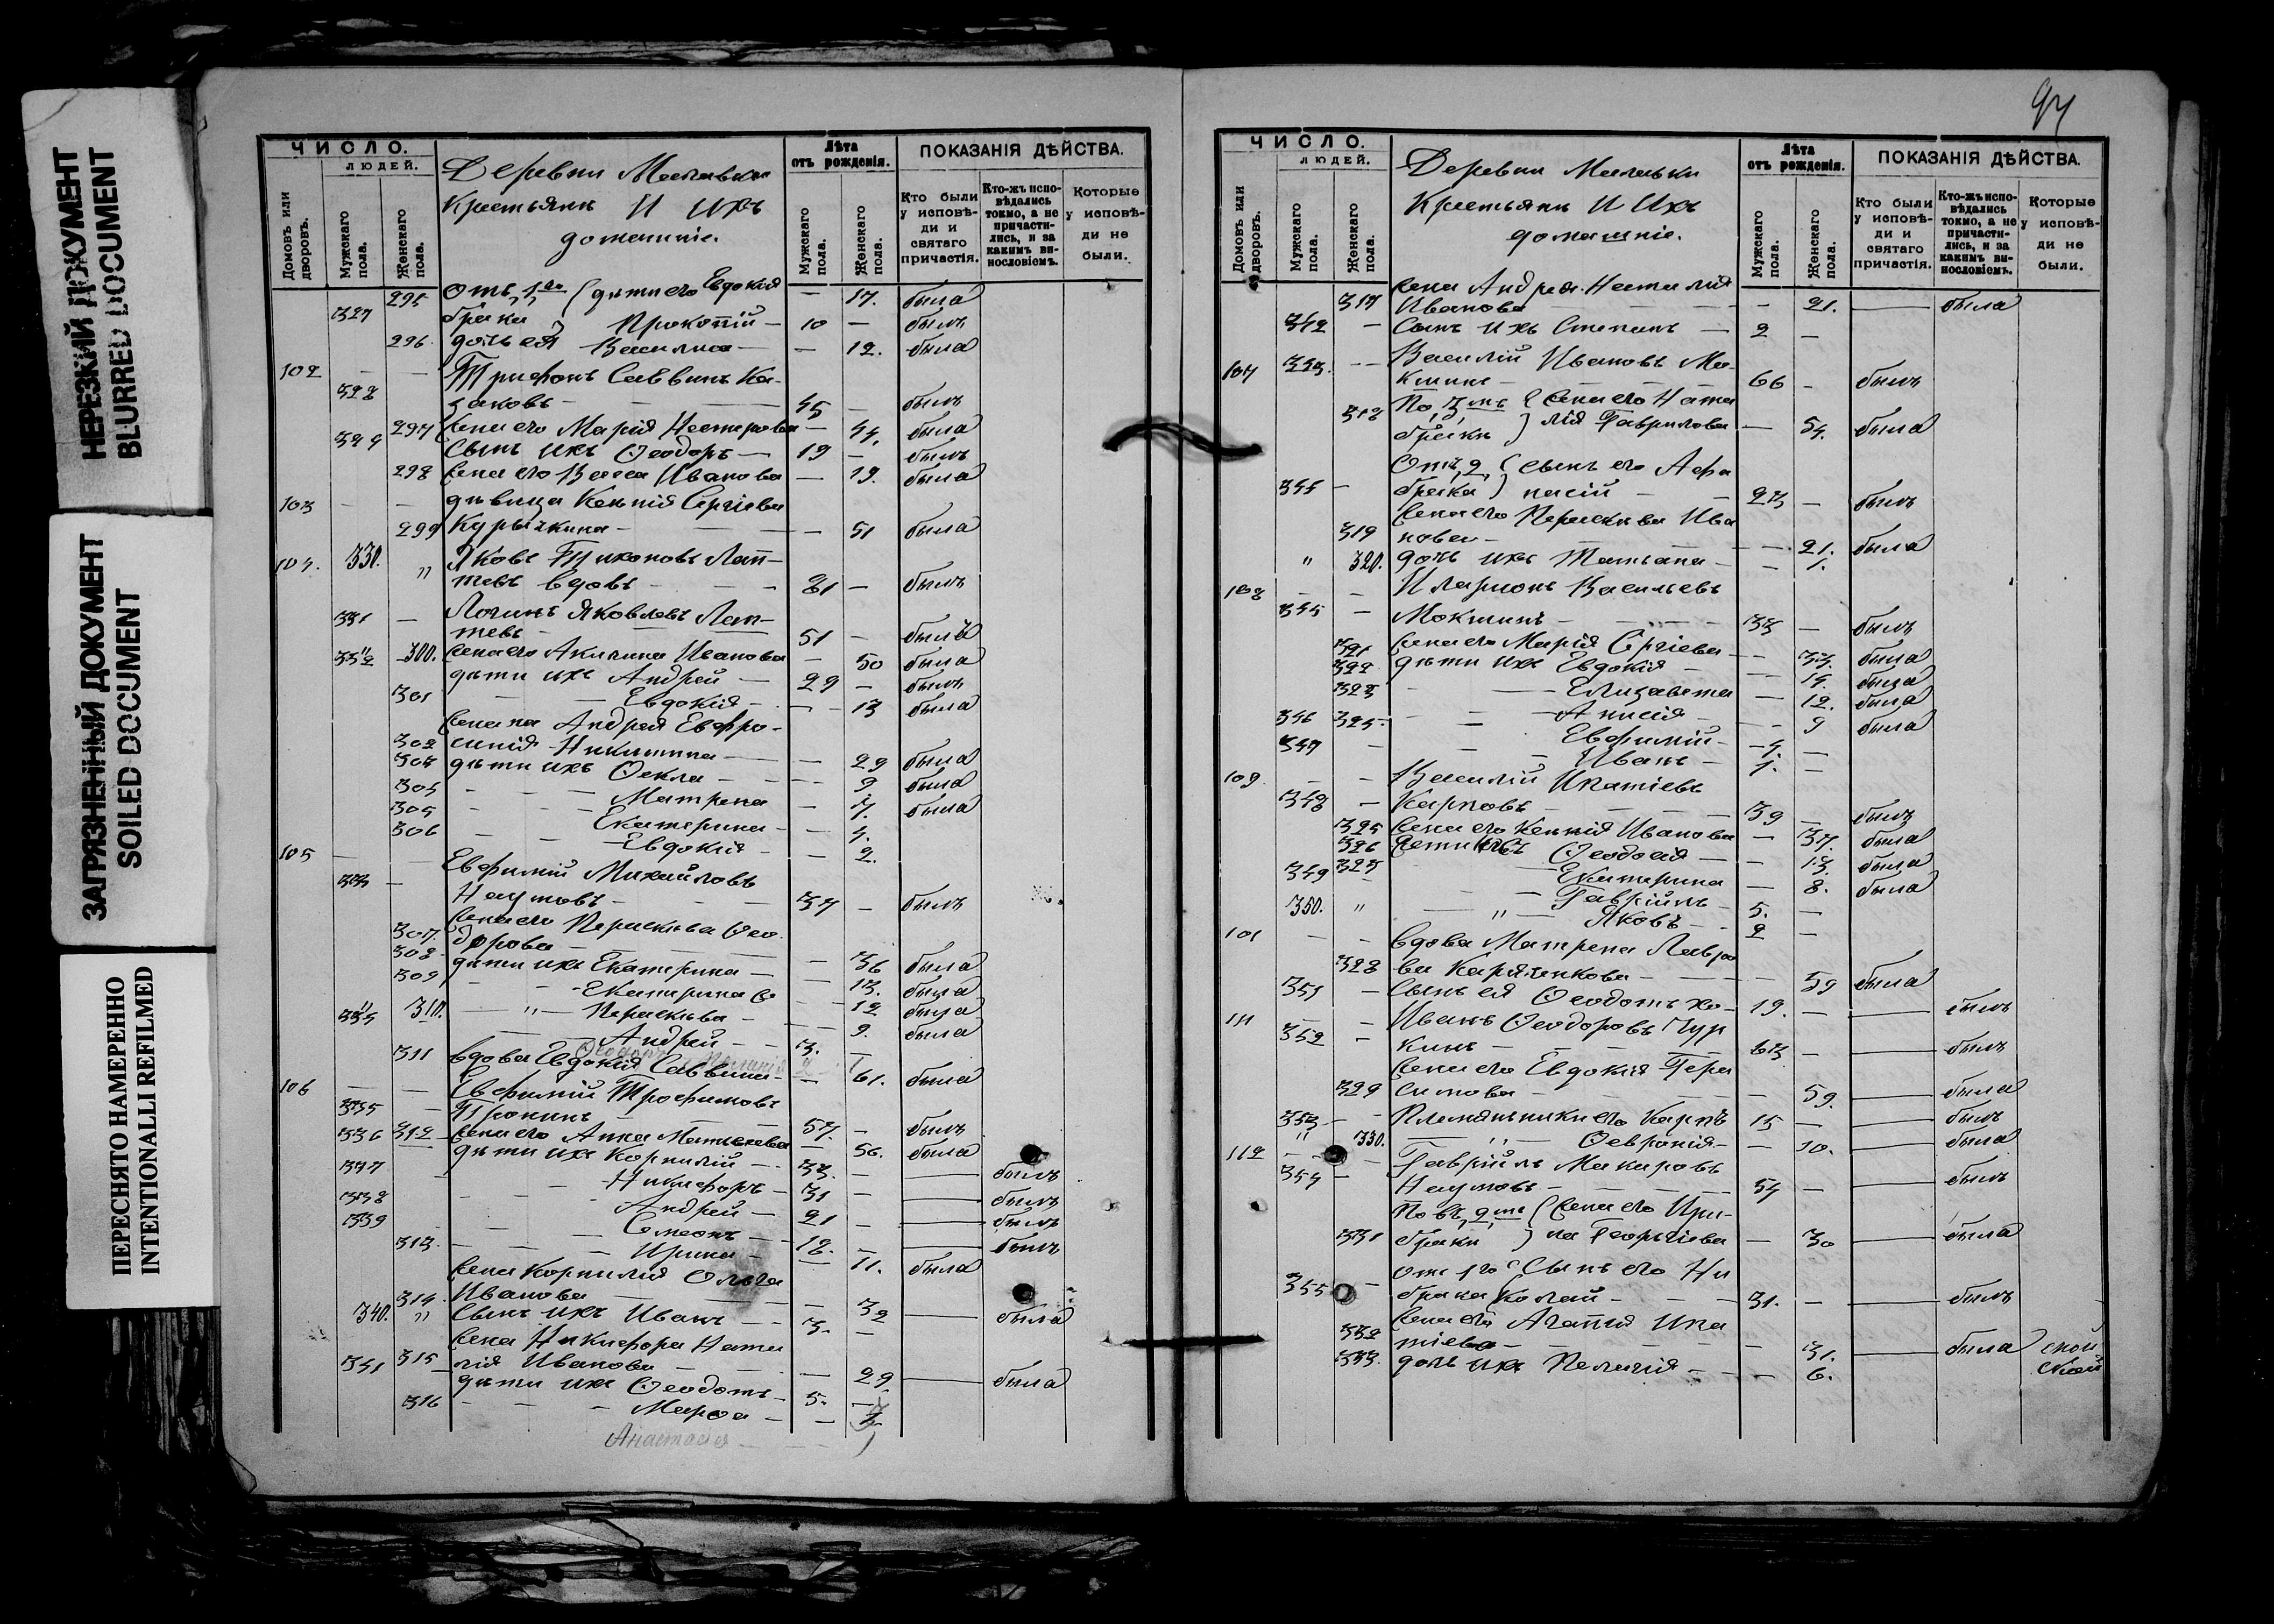 НЕРЕЗКИЙ ДОКУМЕНТ
BLURRED DOCUMENT
ЗАГРЯЗНЕННЫЙ ДОКУМЕНТ
SOILED DOCUMENT
ПЕРЕСНЯТО НАМЕРЕННО
INTENTIONALLI REFILMED
ЧИСЛО.
ЛЮДЕЙ.
Домовъ или дворовъ.
Мужскаго пола.
Женскаго пола.
Деревни
Крестьяне и ихъ
домашніе.
Лѣта отъ рожденія.
Мужскаго пола.
Женскаго пола.
ПОКАЗАНІЯ ДѢЙСТВА.
Кто были у исповѣди и святаго причастія.
Кто-жъ исповѣдались токмо, а не причастились, и за какимъ винословіемъ.
Которые у исповѣди не были.
295 Отъ 1го дѣти его Евдокія — 17. была
327 брака Прокопій — 10 — былъ
296 дочь ея Василиса — — 12. была
102 — — Трифонъ Саввинъ Ка-
328 заковъ — 45 — былъ
297 жена его Марія Нестерова — 44. была
329 сынъ ихъ Ѳеодоръ — 19 — былъ
298 жена его Васса Иванова — 19. была
103 — — дѣвица Ксенія Сергіева
299 Курычкина — — 51 была
104. 330. " Яковъ Тихоновъ Лап-
тевъ вдовъ — 81 — былъ
331 — Логинъ Яковлевъ Лап-
тевъ — 51 — былъ
300. жена его Акилина Иванова — 50 была
332 дѣти ихъ Андрей — 29 — былъ
301 Евдокія — — 13 была
жена Андрея Евфро-
302 синія Никитина — — 29 была
303 дѣти ихъ Ѳекла — — 9 была
304 Матрена — 7. была
305 Екатерина — — 4.
306 Евдокія — — 2.
105 — — Евфимій Михайловъ
333 — Наумовъ — 37 — былъ
жена его Параскева Ѳео-
307. дорова — — 36 была
308 дѣти ихъ Екатерина — — 13. была
309 Екатерина — 12 была
310. — " — Параскева — — 9. была
334 Андрей — 3. —
Ѳеодоръ
311 вдова Евдокія Саввина — — 61. была
106 — — Евфимій Трофимовъ
335 — Тронинъ — 57. — былъ
312 жена его Анна Матвеева — 56. была
336 дѣти ихъ Корнилій — 33. — — былъ
337 Никифоръ — 31 — — былъ
338 Андрей — 21 — — былъ
339 Симеонъ — 16. — — былъ
313. Ирина — — 11. была
жена Корнилія Ольга
314. Иванова — — 32 — была
340. " сынъ ихъ Иванъ — 3. —
жена Никифора Ната
315 лія Иванова — — 29 — была
341 дѣти ихъ Ѳеодотъ — 5. —
316 Марѳа — — 3.
Анастасія — 1
97
ЧИСЛО.
ЛЮДЕЙ.
Домовъ или дворовъ.
Мужскаго пола.
Женскаго пола.
Деревни
Крестьяне и Ихъ
домашніе.
Лѣта отъ рожденія.
Мужскаго пола.
Женскаго пола.
ПОКАЗАНІЯ ДѢЙСТВА.
Кто были у исповѣди и святаго причастія.
Кто-жъ исповѣдались токмо, а не причастились, и за какимъ винословіемъ.
Которые у исповѣди не были.
жена Андрея Наталія
317 Иванова — — 21. — была
342 — Сынъ ихъ Степанъ — 2 —
107 343. — Василій Ивановъ Мо-
кшинъ — 66 — былъ
По 3мъ жена его Ната
318 бракѣ лія Гаврилова — 54. была
Отъ 2 сынъ его Аѳа
344 — брака насій — 23 — былъ
жена его Параскева Ива
319 нова — — 21. была
" 320. дочь ихъ Татьяна — — 1.
108 — — Иларіонъ Васильевъ
345 — Мокшинъ — 33 — былъ
321 жена его Марія Сергіева — 33. была
322 дѣти ихъ Евдокія — — 14. была
323 Елизавета — 12. была
324 Анисія — — 9 была
346 Евфимій — 4. —
347 — Иванъ — 1. —
109 — — Василій Ипатіевъ
348 — Карповъ — 39 — былъ
325 жена его Ксенія Иванова — 37. была
326 дѣти ихъ Ѳеодосія — — 13. была
327 Екатерина — 8. была
349 Гавріилъ — 5. —
350. " — " — Яковъ — 2 —
101 — — вдова Матрена Лавро
328 ва — — 59 была
351 — сынъ ея Ѳеодотъ хо- 19. — — былъ
111 — — Иванъ Ѳеодоровъ Чур
352 — кинъ — 63 — — былъ
жена его Евдокія Гера
329 симова — — 59. — была
353 — Племянники его Карпъ 15 — — былъ
" 330. — " — Ѳевронія — — 10. — была
112 — — Гавріилъ Макаровъ
354 — Наумовъ — 54 — — былъ
По въ 2мъ жена его Ири-
331 бракѣ на Георгіева — 30 — была
отъ 1го Сынъ его Ни
355 — брака колай — 31. — — былъ
жена его Агапія Ипа
332 тіева — — 31. — была
333. дочь ихъ Пелагія — — 6.